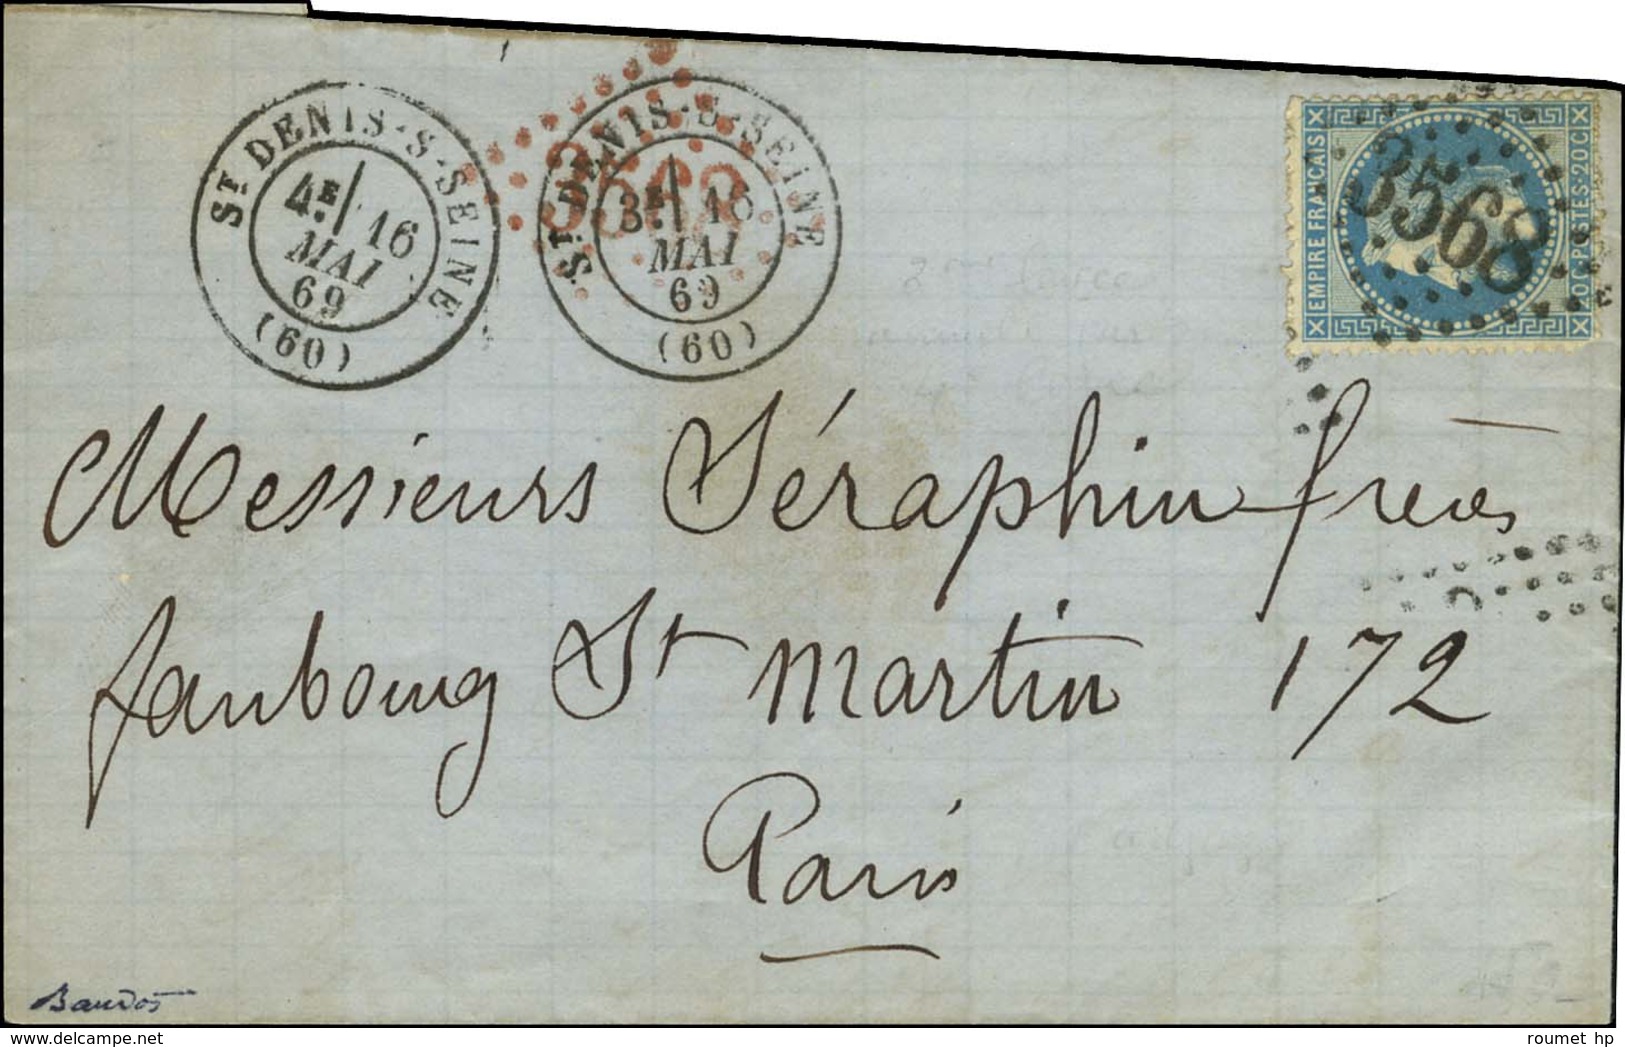 ST DENIS-S-SEINE
4E/ 16
MAI
69
(60)
ST DENIS-S-SEINE
3E/ 16
MAI
69
(60)
3568
EMPIRE FRANÇAIS
20 C-POSTES-20 C
3568
Messieurs Séraphin frères
faubourg St Martin 172
Paris
Baudot
roumet hp